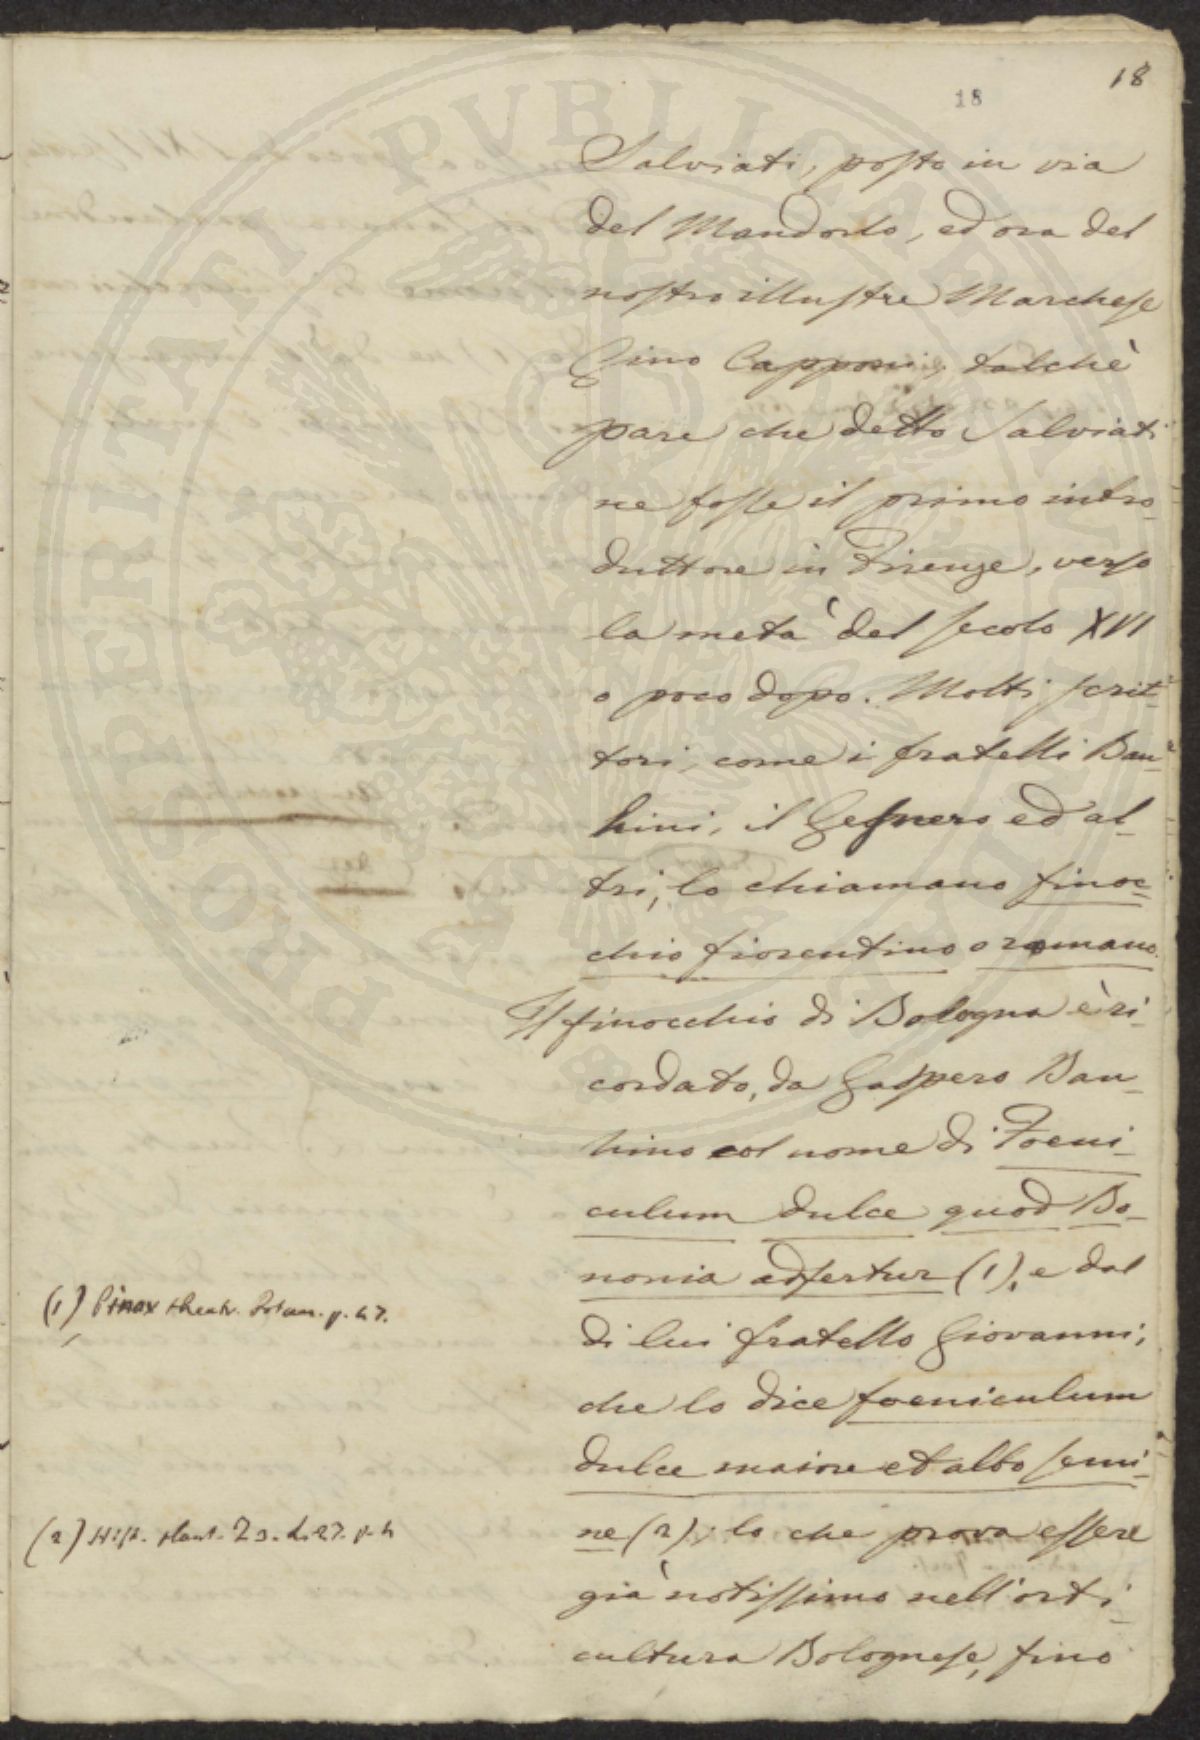 18
18
Salviati, posto in via
del Mandorlo, ed ora del
nostro illustre Marchese
Gino Capponi, talchè
pare che detto Salviati
ne fosse il primo intro-
duttore in Firenze, verso
la metà del secolo XVI
o poco dopo. Molti scrit-
tori, come i fratelli Bau-
hini, il Gesnero ed al-
tri, lo chiamano finoc-
chio fiorentino o romano.
Il finocchio di Bologna è ri-
cordato, da Gaspero Bau-
hino col nome di Foeni-
culum dulce quod Bo-
nonia adfertur (1), e dal
(1) Pinax theatr. Botan. p. 47.
di lui fratello Giovanni,
che lo dice foeniculum
dulce maiore et albo semi-
ne (2), lo che prova essere
(2) Hist. Plant. L. 27. p. 4
già notissimo nell'orti-
cultura Bolognese, fino
PROSPERITATI PUBLICAE